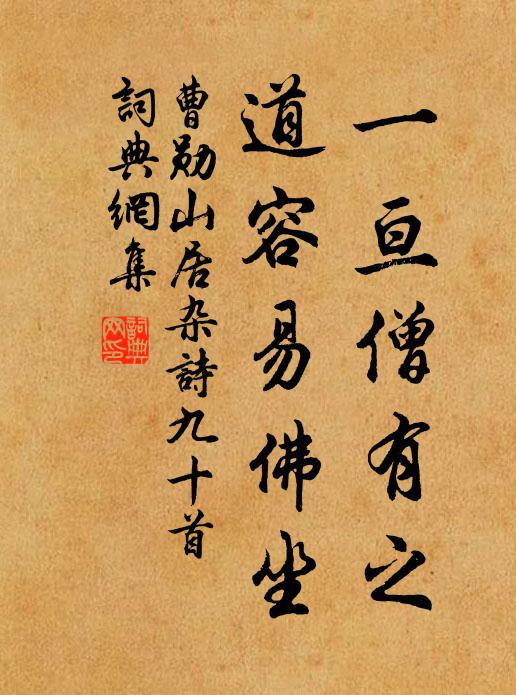 一亘僧有之
道容易佛坐
曹勛山居杂詩九十首
詞典網集
詞典网印